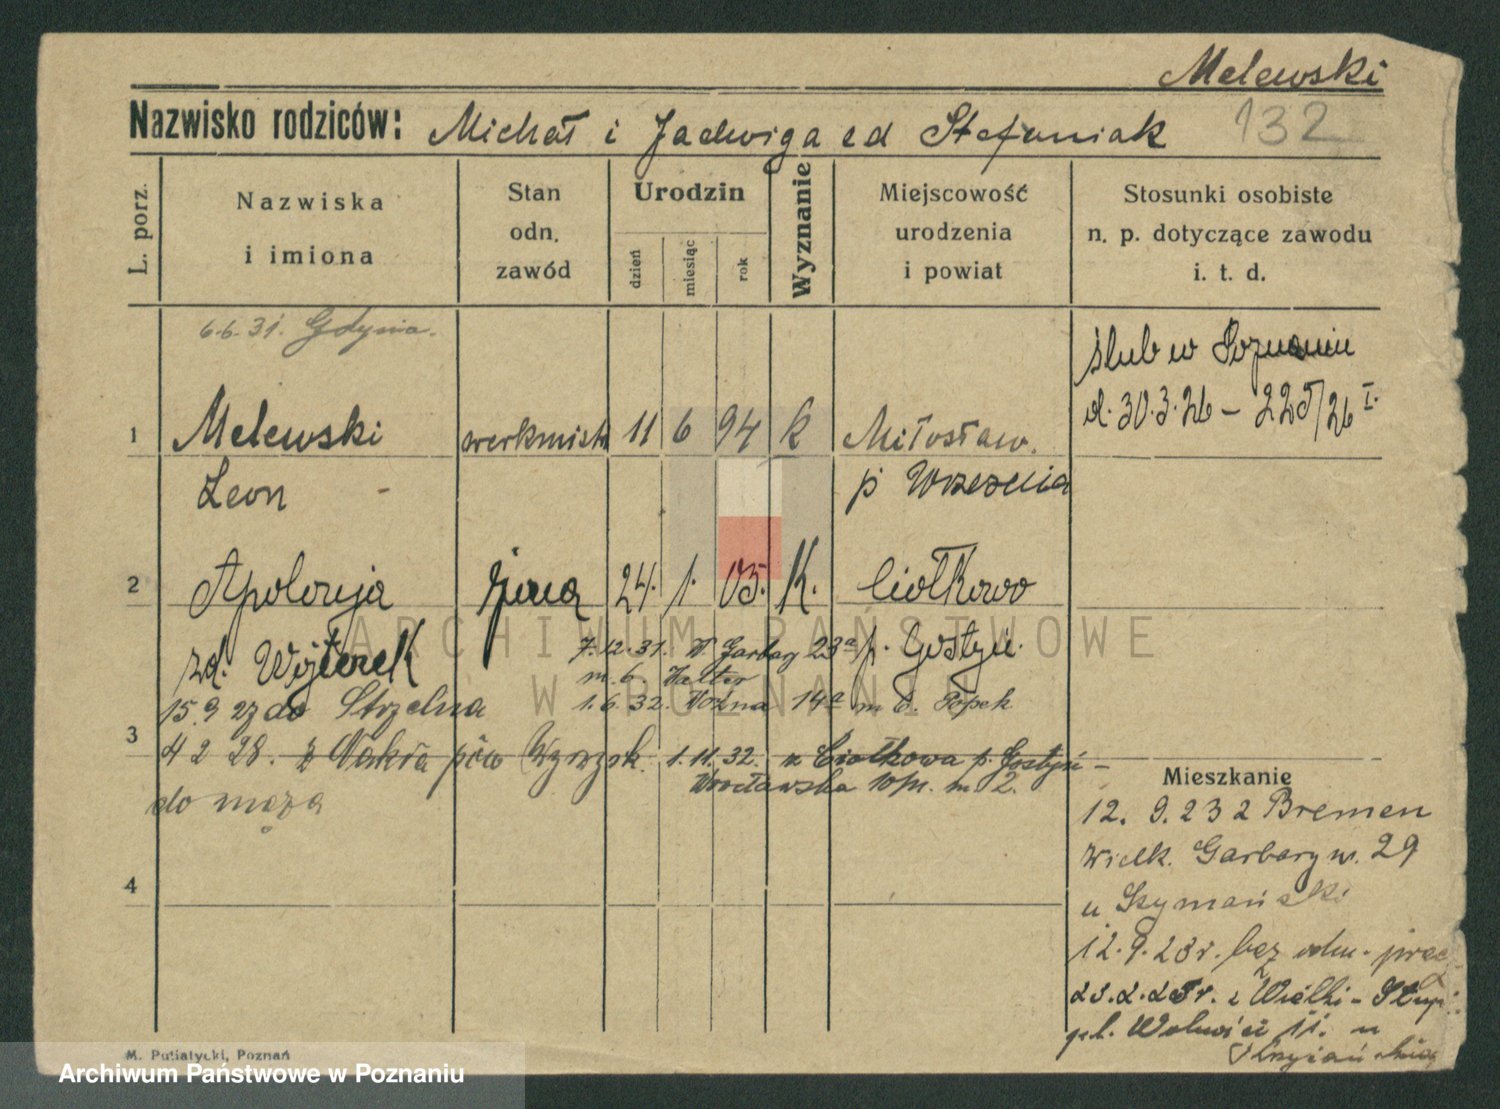 Melewski
Nazwisko rodziców: Michał i Jadwiga zd Stefaniak
132
L. porz.
Nazwiska
i imiona
Stan
odn.
zawód
Urodzin
dzień
miesiąc
rok
Wyznanie
Miejscowość
urodzenia
i powiat
Stosunki osobiste
n. p. dotyczące zawodu
i. t. d.
6.6.31. Gdynia.
ślub w Poznaniu
d. 30.3.26 – 225/26 I.
1 Melewski werkmistr 11 6 94 k Miłosław.
Leon p Września
2 Apolonja żona 24. 1. 05. K. Ciołkowo
zd. Wojterek p. Gostyń.
7.12.31. W. Garbary 23a
m. 6.
15.9 27 do Strzelna
1.6.32. Woźna 14a m 6. Popek
3
4 2 28. z Nakła pow Wyrzysk. 1.11.32. z Ciołkowa p. Gostyń –
Wrocławska m 2.
do męża
Mieszkanie
12. 9.23 z Bremen
Wielk. Garbary nr. 29
u Szymański
12.9.23 r. bez
z Wielki-
pl. Wolności 11. u
4
M. Putiatycki, Poznań
ARCHIWUM PAŃSTWOWE
W POZNANIU
Archiwum Państwowe w Poznaniu